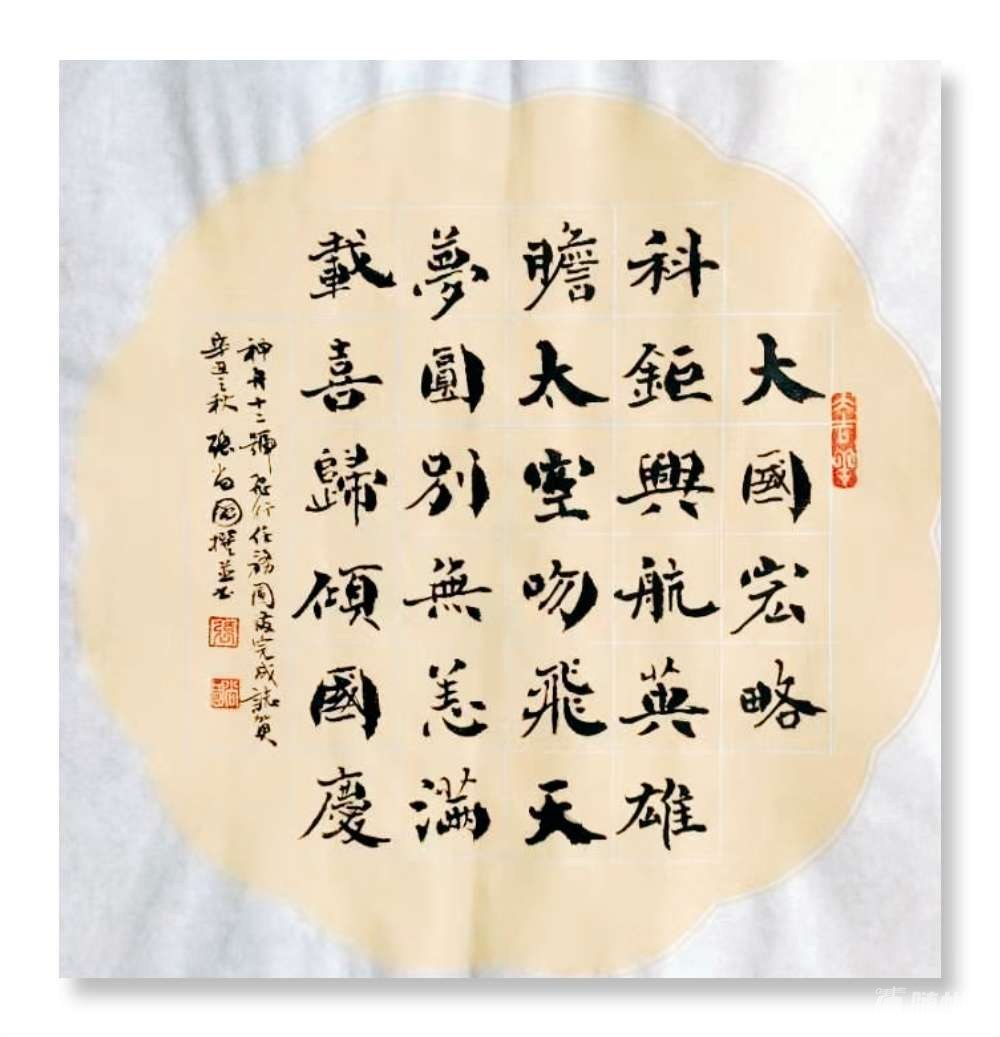 大吉羊
大國宏略
科鉅興航英雄
瞻太空吻飛天
夢圓別無恙滿
載喜歸傾國慶
神舟十二號飛行任務圓滿完成誌賀
辛丑之秋 張尚國撰並书
張